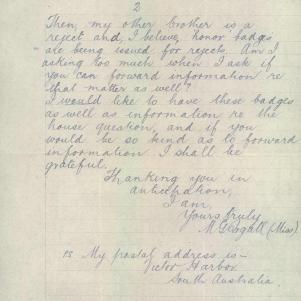 2
Then, my other brother is a
reject and, I believe, honor badges
are being issued for rejects. Am I
asking too much when I ask if
you can forward information re
that matter as well?
I would like to have these badges
as well as information re the
house question, and if you
would be so kind as to forward
information I shall be
grateful.
Thanking you in
anticipation,
I am,
Yours truly
(Miss)
My postal address is:-
Victor Harbor
South Australia